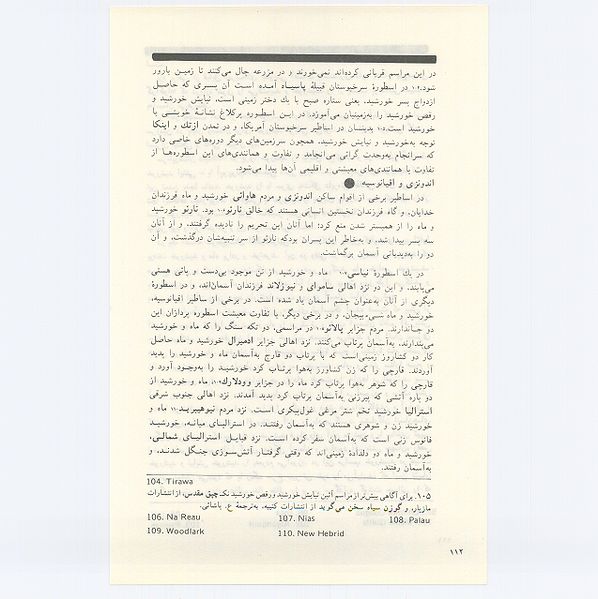 در این مراسم قربانی کرده‌اند نمی‌خورند و در مزرعه چال می‌کنند تا زمین بارور
شود.۱۰۴ در اسطورهٔ سرخپوستان قبیلهٔ پاسیاه آمده است آن پسری که حاصل
ازدواج پسر خورشید، یعنی ستاره صبح با یك دختر زمینی است، نیایش خورشید و
رقص خورشید را به‌زمینیان می‌آموزد. در این اسطوره پرکلاغ نشانهٔ خویشی با
خورشید است.۱۰۵ بدینسان در اساطیر سرخپوستان آمریکا، و در تمدن آزتك و اینکا
توجه به‌خورشید و نیایش خورشید، همچون سرزمین‌های دیگر دوره‌های خاصی دارد
که سرانجام به‌وحدت گرائی می‌انجامد و تفاوت و همانندی‌های این اسطوره‌ها از
تفاوت یا همانندی‌های معیشتی و اقلیمی آن‌ها پیدا می‌شود.
اندونزی و اقیانوسیه ●
در اساطیر برخی از اقوام ساکن اندونزی و مردم هاوائی خورشید و ماه فرزندان
خدایان، و گاه فرزندان نخستین انسانی هستند که خالق نارئو۱۰۶ بود. نارئو خورشید
و ماه را از همبستر شدن منع کرد؛ اما آنان این تحریم را نادیده گرفتند، و از آنان
سه پسر پیدا شد، و به‌خاطر این پسران بودکه نارئو از سر تنبیه‌شان درگذشت، و آن
دو را به‌دیدبانی آسمان برگماشت.
در یك اسطورهٔ نیاسی۱۰۷ ماه و خورشید از تن موجود بی‌دست و پائی هستی
می‌یابند. و این دو نزد اهالی ساموای و نیوزلاند فرزندان آسمان‌اند، و در اسطورهٔ
دیگری از آنان به‌عنوان چشم آسمان یاد شده است. در برخی از ساطیر اقیانوسیه،
خورشید و ماه شیء بیجان، و در برخی دیگر، با تفاوت معیشت اسطوره پردازان این
دو جاندارند. مردم جزایر پالائو۱۰۸ در مراسمی، دو تکه سنگ را که ماه و خورشید
می‌پندارند، به‌آسمان پرتاب می‌کنند. نزد اهالی جزایر ادمیرال خورشید و ماه حاصل
کار دو کشاروز زمینی‌است که با پرتاب دو قارچ به‌آسمان ماه و خورشید را پدید
آوردند. قارچی را که زن کشاورز به‌هوا پرتاب کرد خورشید را به‌وجود آورد و
قارچی را که شوهر به‌هوا پرتاب کرد ماه را در جزایر وودلارك۱۰۹، ماه و خورشید از
دو پاره آتشی که پیرزنی به‌آسمان پرتاب کرد پدید آمدند. نزد اهالی جنوب شرقی
استرالیا خورشید تخم شتر مرغی غول‌پیکری است. نزد مردم نیوهیبرید۱۱۰ ماه و
خورشید زن و شوهری هستند که به‌آسمان رفتند. در استرالیای میانه، خورشید
فانوس زنی است که به‌آسمان سفر کرده است. نزد قبایل استرالیای شمالی،
خورشید و ماه دو دلدادهٔ زمینی‌اند که وقتی گرفتار آتش‌سوزی جنگل شدند، و
به‌آسمان رفتند.
104. Tirawa
۱۰۵. برای آگاهی بیش‌تر از مراسم آئین نیایش خورشید و رقص خورشید نک چپق مقدس، از انتشارات
مازیار، و گوزن سیاه سخن می‌گوید از انتشارات کتیبه. به‌ترجمهٔ ع. پاشائی.
106. Na Reau 107. Nias 108. Palau
109. Woodlark 110. New Hebrid
۱۱۲